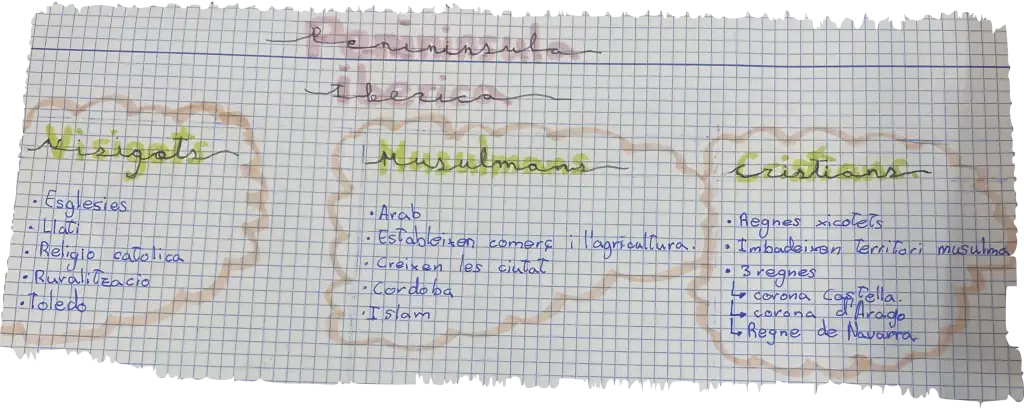 Penininsula
iberica
Visigots
• Esglesies
• Llati
• Religio catolica
• Ruralitzacio
• Toledo
Musulmans
• Arab
• Estableixen comerç i l'agricultura.
• Creixen les ciutat
• Cordoba
• Islam
Cristians
• Regnes xicotets
• Imbadeixen territori musulma
• 3 regnes
↳ corona Castella.
↳ corona d'Arago
↳ Regne de Navarra